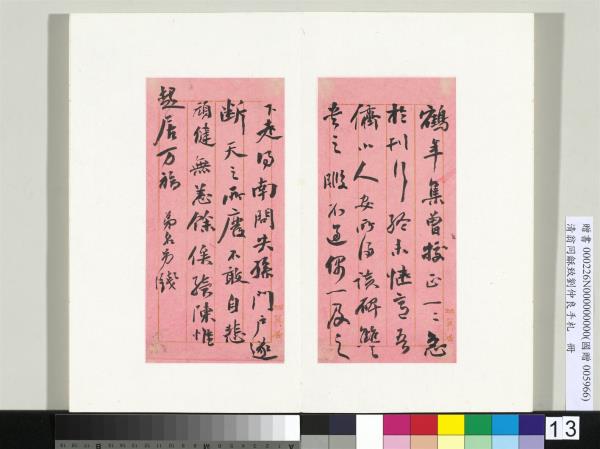 鶴年集曾校正一二急
於刊行終未愜意吾
儕小人安所得讀碑讎
書之暇不過偶一及之
下走得南闈失孫門戶遂
斷天之所廢不敢自悲
頑健無恙餘俟續陳惟
起居万福
贈書 000226N000000000(國贈 005966)
清翁同龢致劉仲良手札 冊
13